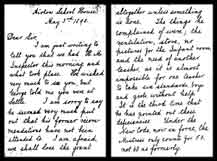 Airton School House
May 3rd 1890.
Dear Sir,
I am just writing to
tell you that we had the
Inspector this morning and
what took place. He wished
me to see you, but
George told me you were at
Settle. I am sorry to say
he seemed very much put
out that his former recom-
mendations have not been
attended to. I am afraid,
we shall lose the grant
altogether unless something
is done. The things he
complained of were; the
ventilation, stove, no
Mistress for the Infant room
and the need of another
teacher, as it is almost
impossible for one teacher
to take six standards, tops
and girls without help.
It is the third time that
he has pointed out these
deficiencies. Under the
New Code, now in force, the
Mistress only counts for 50.
not 60 as formerly.